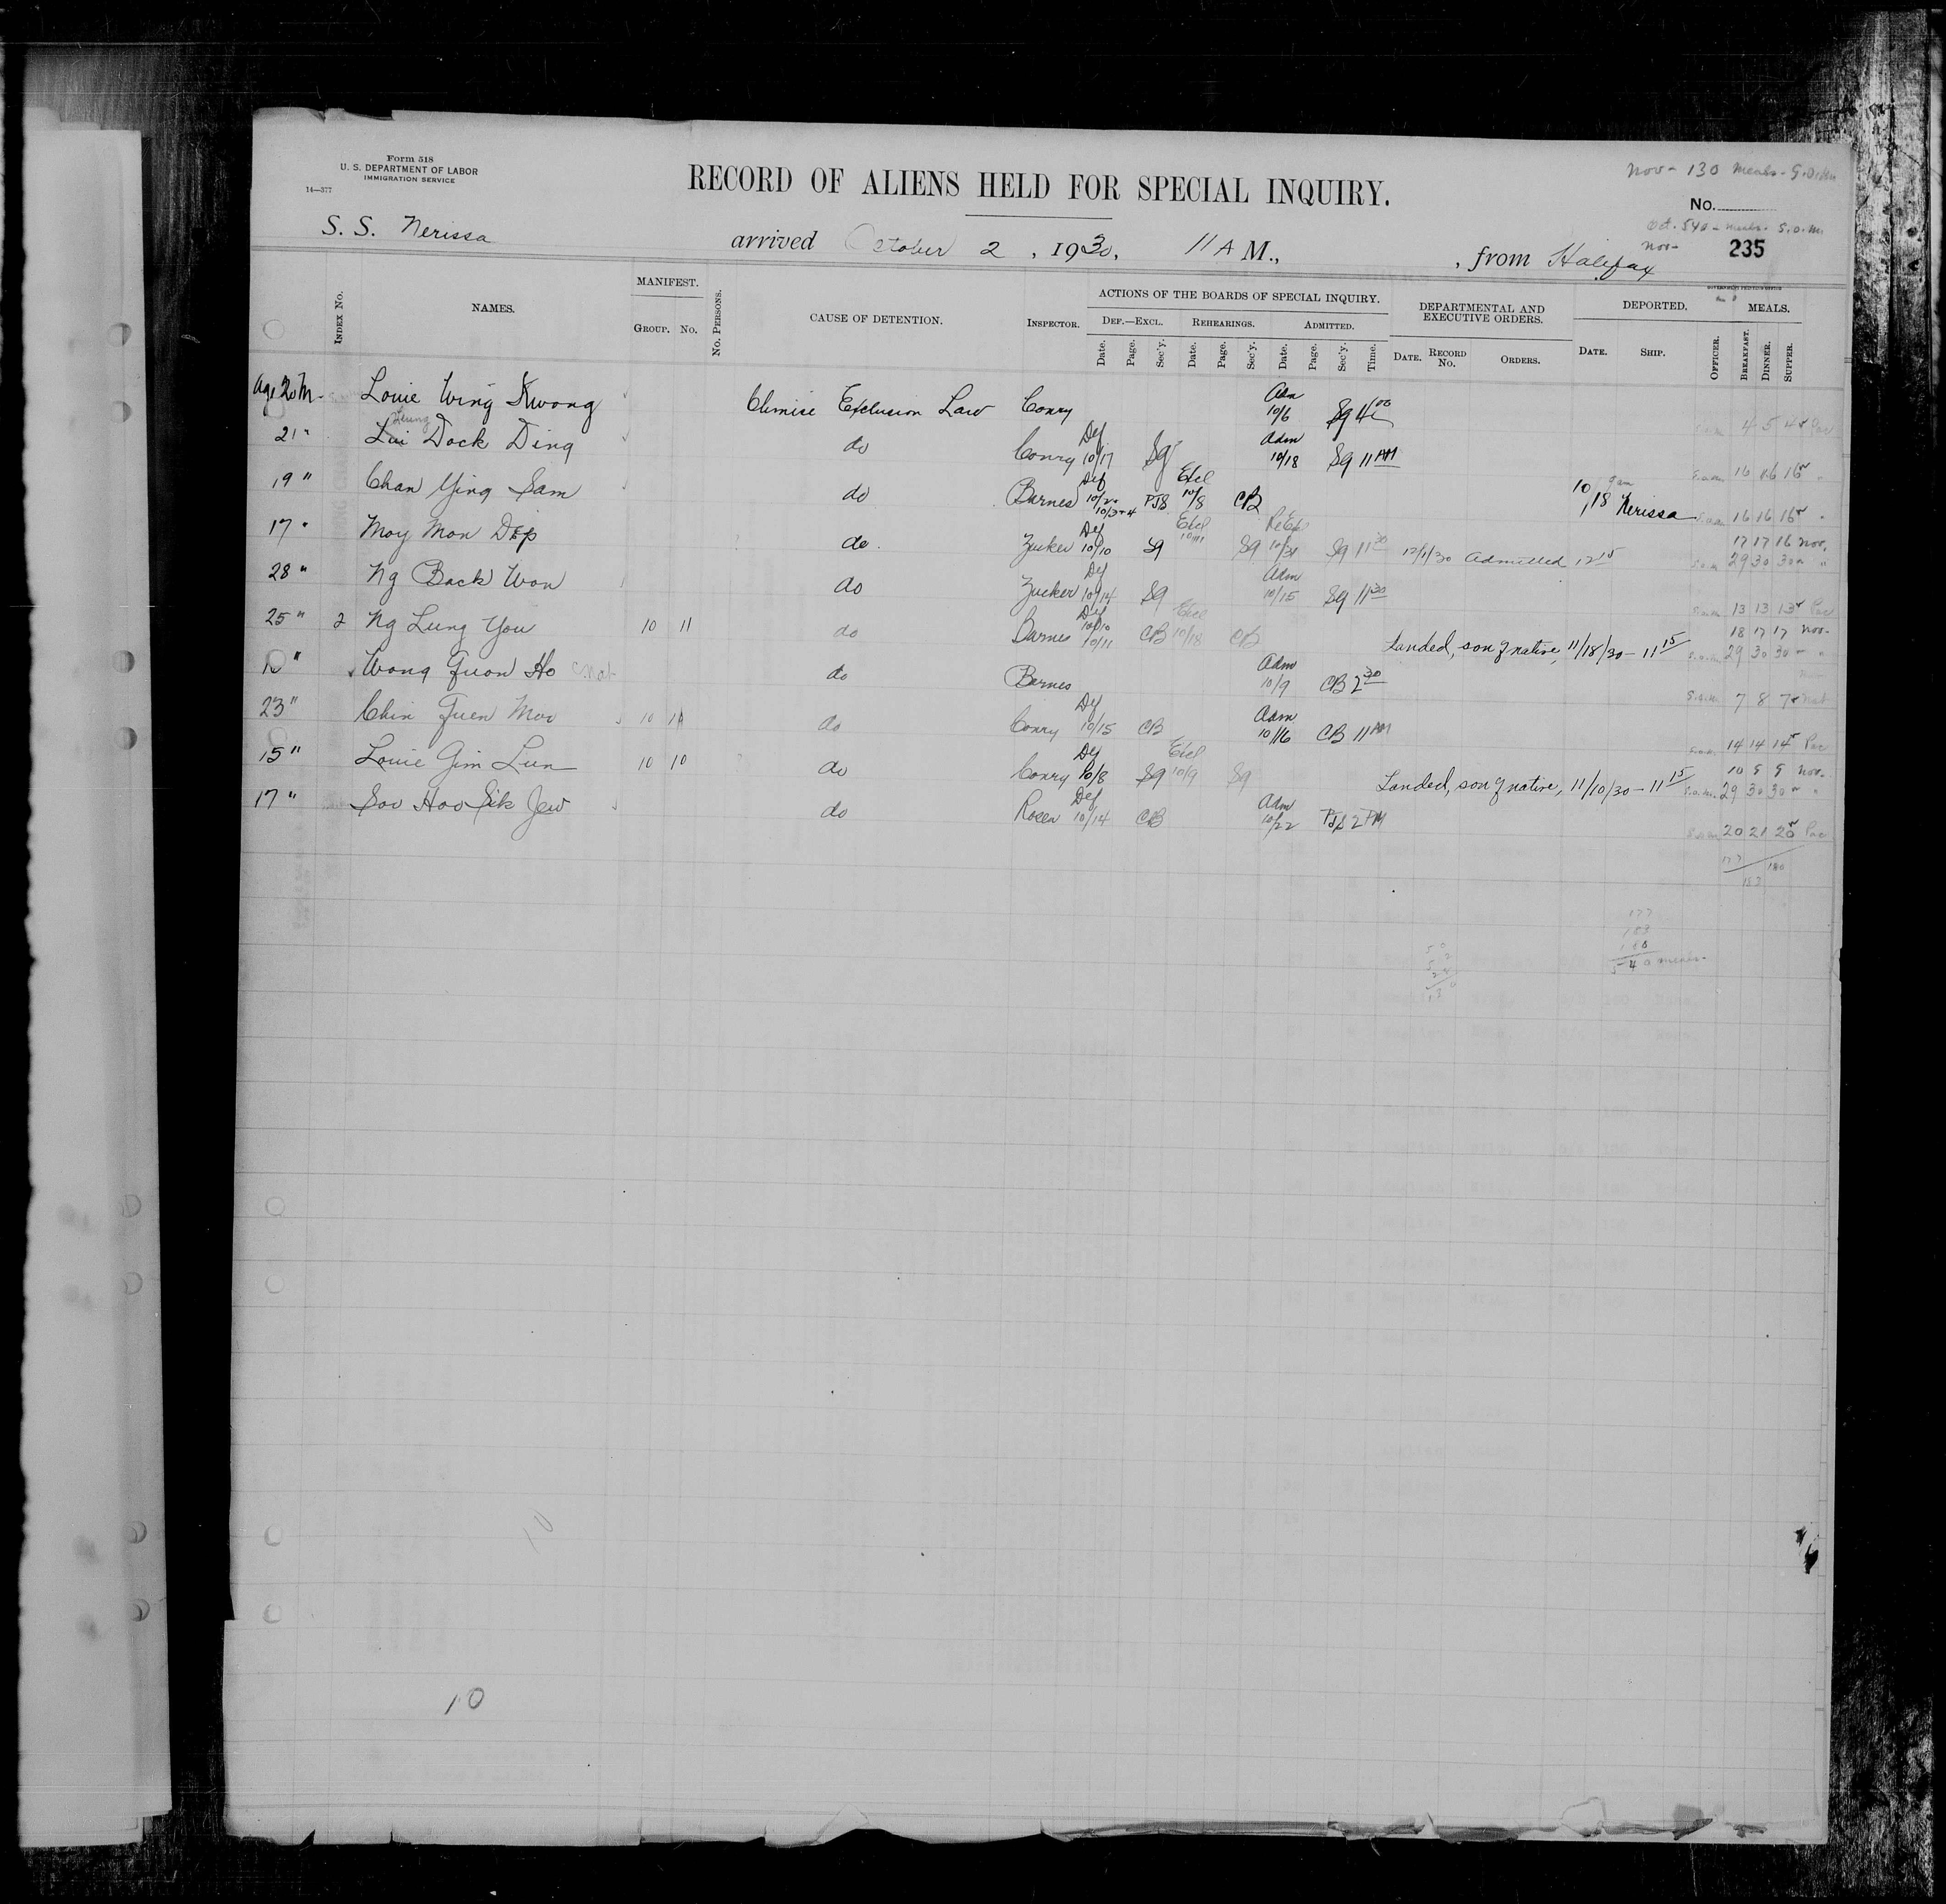 Form 518
U. S. DEPARTMENT OF LABOR
IMMIGRATION SERVICE
14—377
RECORD OF ALIENS HELD FOR SPECIAL INQUIRY.
Nov - 130 meals -
No.
Oct. 540 - meals - S.O.M.
Nov - 235
S. S. Nerissa arrived October 2, 1930, 11 A M., , from Halifax
Index No. NAMES. MANIFEST. Group. No. No. Persons. CAUSE OF DETENTION. Inspector. ACTIONS OF THE BOARDS OF SPECIAL INQUIRY. Def.—Excl. Date. Page. Sec'y. Rehearings. Date. Page. Sec'y. Admitted. Date. Page. Sec'y. Time. DEPARTMENTAL AND EXECUTIVE ORDERS. Date. Record No. Orders. DEPORTED. Date. Ship. Officer. MEALS. Breakfast. Dinner. Supper.
Age 20 M. Louie Wing Kwong Chinise Exclusion Law Conry Adm 10/6 Sg 4 00 4 5 4 Pac
21 " Lui Leung Dock Ding do Conry Def 10/17 Sg Adm 10/18 Sg 11 AM 16 16 16 "
19 " Chan Ying Sam do Barnes Def 10/2 10/3+4 PJS Excl 10/8 CB 10/18 9am Nerissa 16 16 16 "
17 " Moy Mon Dep do. Zucker Def 10/10 Sg Excl 10/11 Sg ReExl 10/31 Sg 11 30 12/1/30 Admitted 12 15 17 17 16 Nov. 29 30 30 "
28 " Ng Back Won do Zucker Def 10/14 Sg Adm 10/15 Sg 11 30 13 13 13 Pac
25 " 2 Ng Lung You 10 11 do Barnes Def 10/10 10/11 CB Excl 10/18 CB Landed, son of native, 11/18/30 - 11 15 18 17 17 Nov. 29 30 30 "
" Wong Quon Ho do Barnes Adm 10/9 CB 2 30 7 8 7 Nat
23 " Chin Quen Moo 10 do Conry Def 10/15 CB Adm 10/16 CB 11 AM 14 14 14 Pac
15 " Louie Gim Lun 10 10 do Conry Def 10/8 Sg Excl 10/9 Sg Landed, son of native, 11/10/30 - 11 15 10 9 9 Nov. 29 30 30 "
17 " Soo Hoo Sik Jew do Rosen Def 10/14 CB Adm 10/22 PJS 2 PM 20 21 20 Pac
177 180
183
177
183
180
540 meals -
50
52
130
10
10